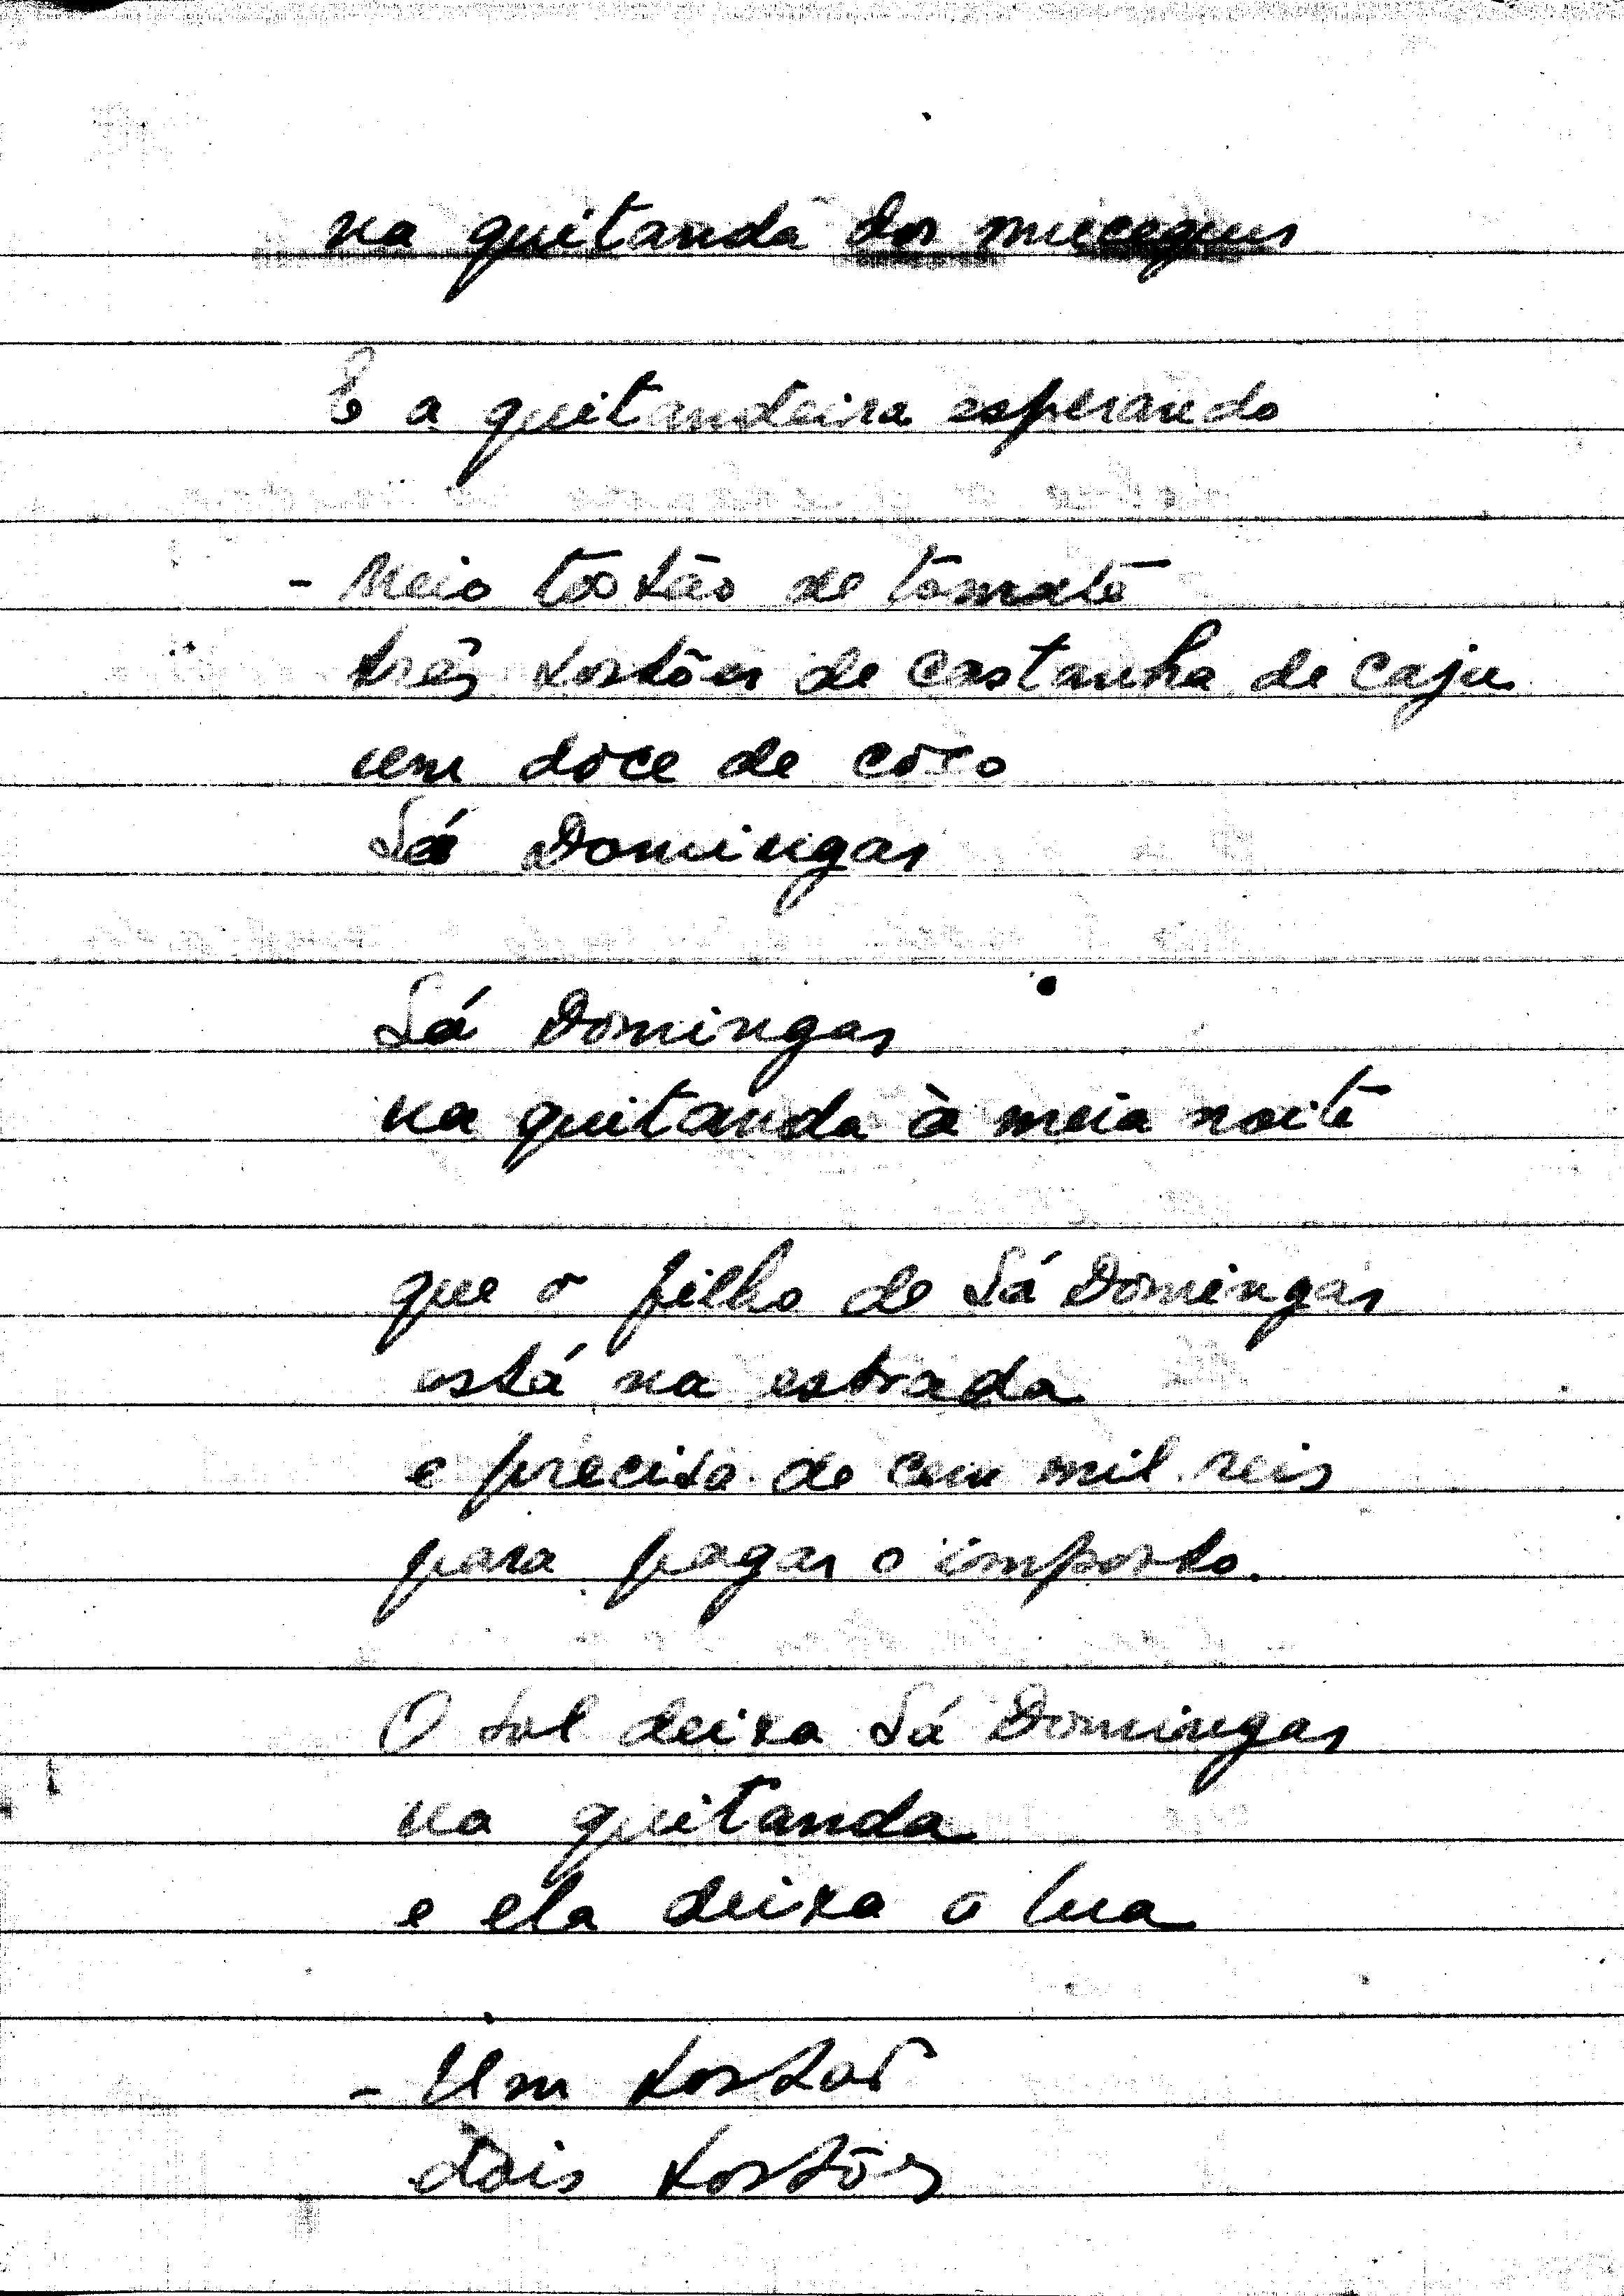 na quitanda dos muceques
E a quitandeira esperando
- Meio tostão de tomate
três tostões de castanha de caju
um doce de coco
Sá Domingas
Sá Domingas
na quitanda à meia noite
que o filho de Sá Domingas
está na estrada
e precisa de cem mil reis
para pagar o imposto.
O sol deixa Sá Domingas
na quitanda
e ela deixa a lua
- Um tostão
dois tostões